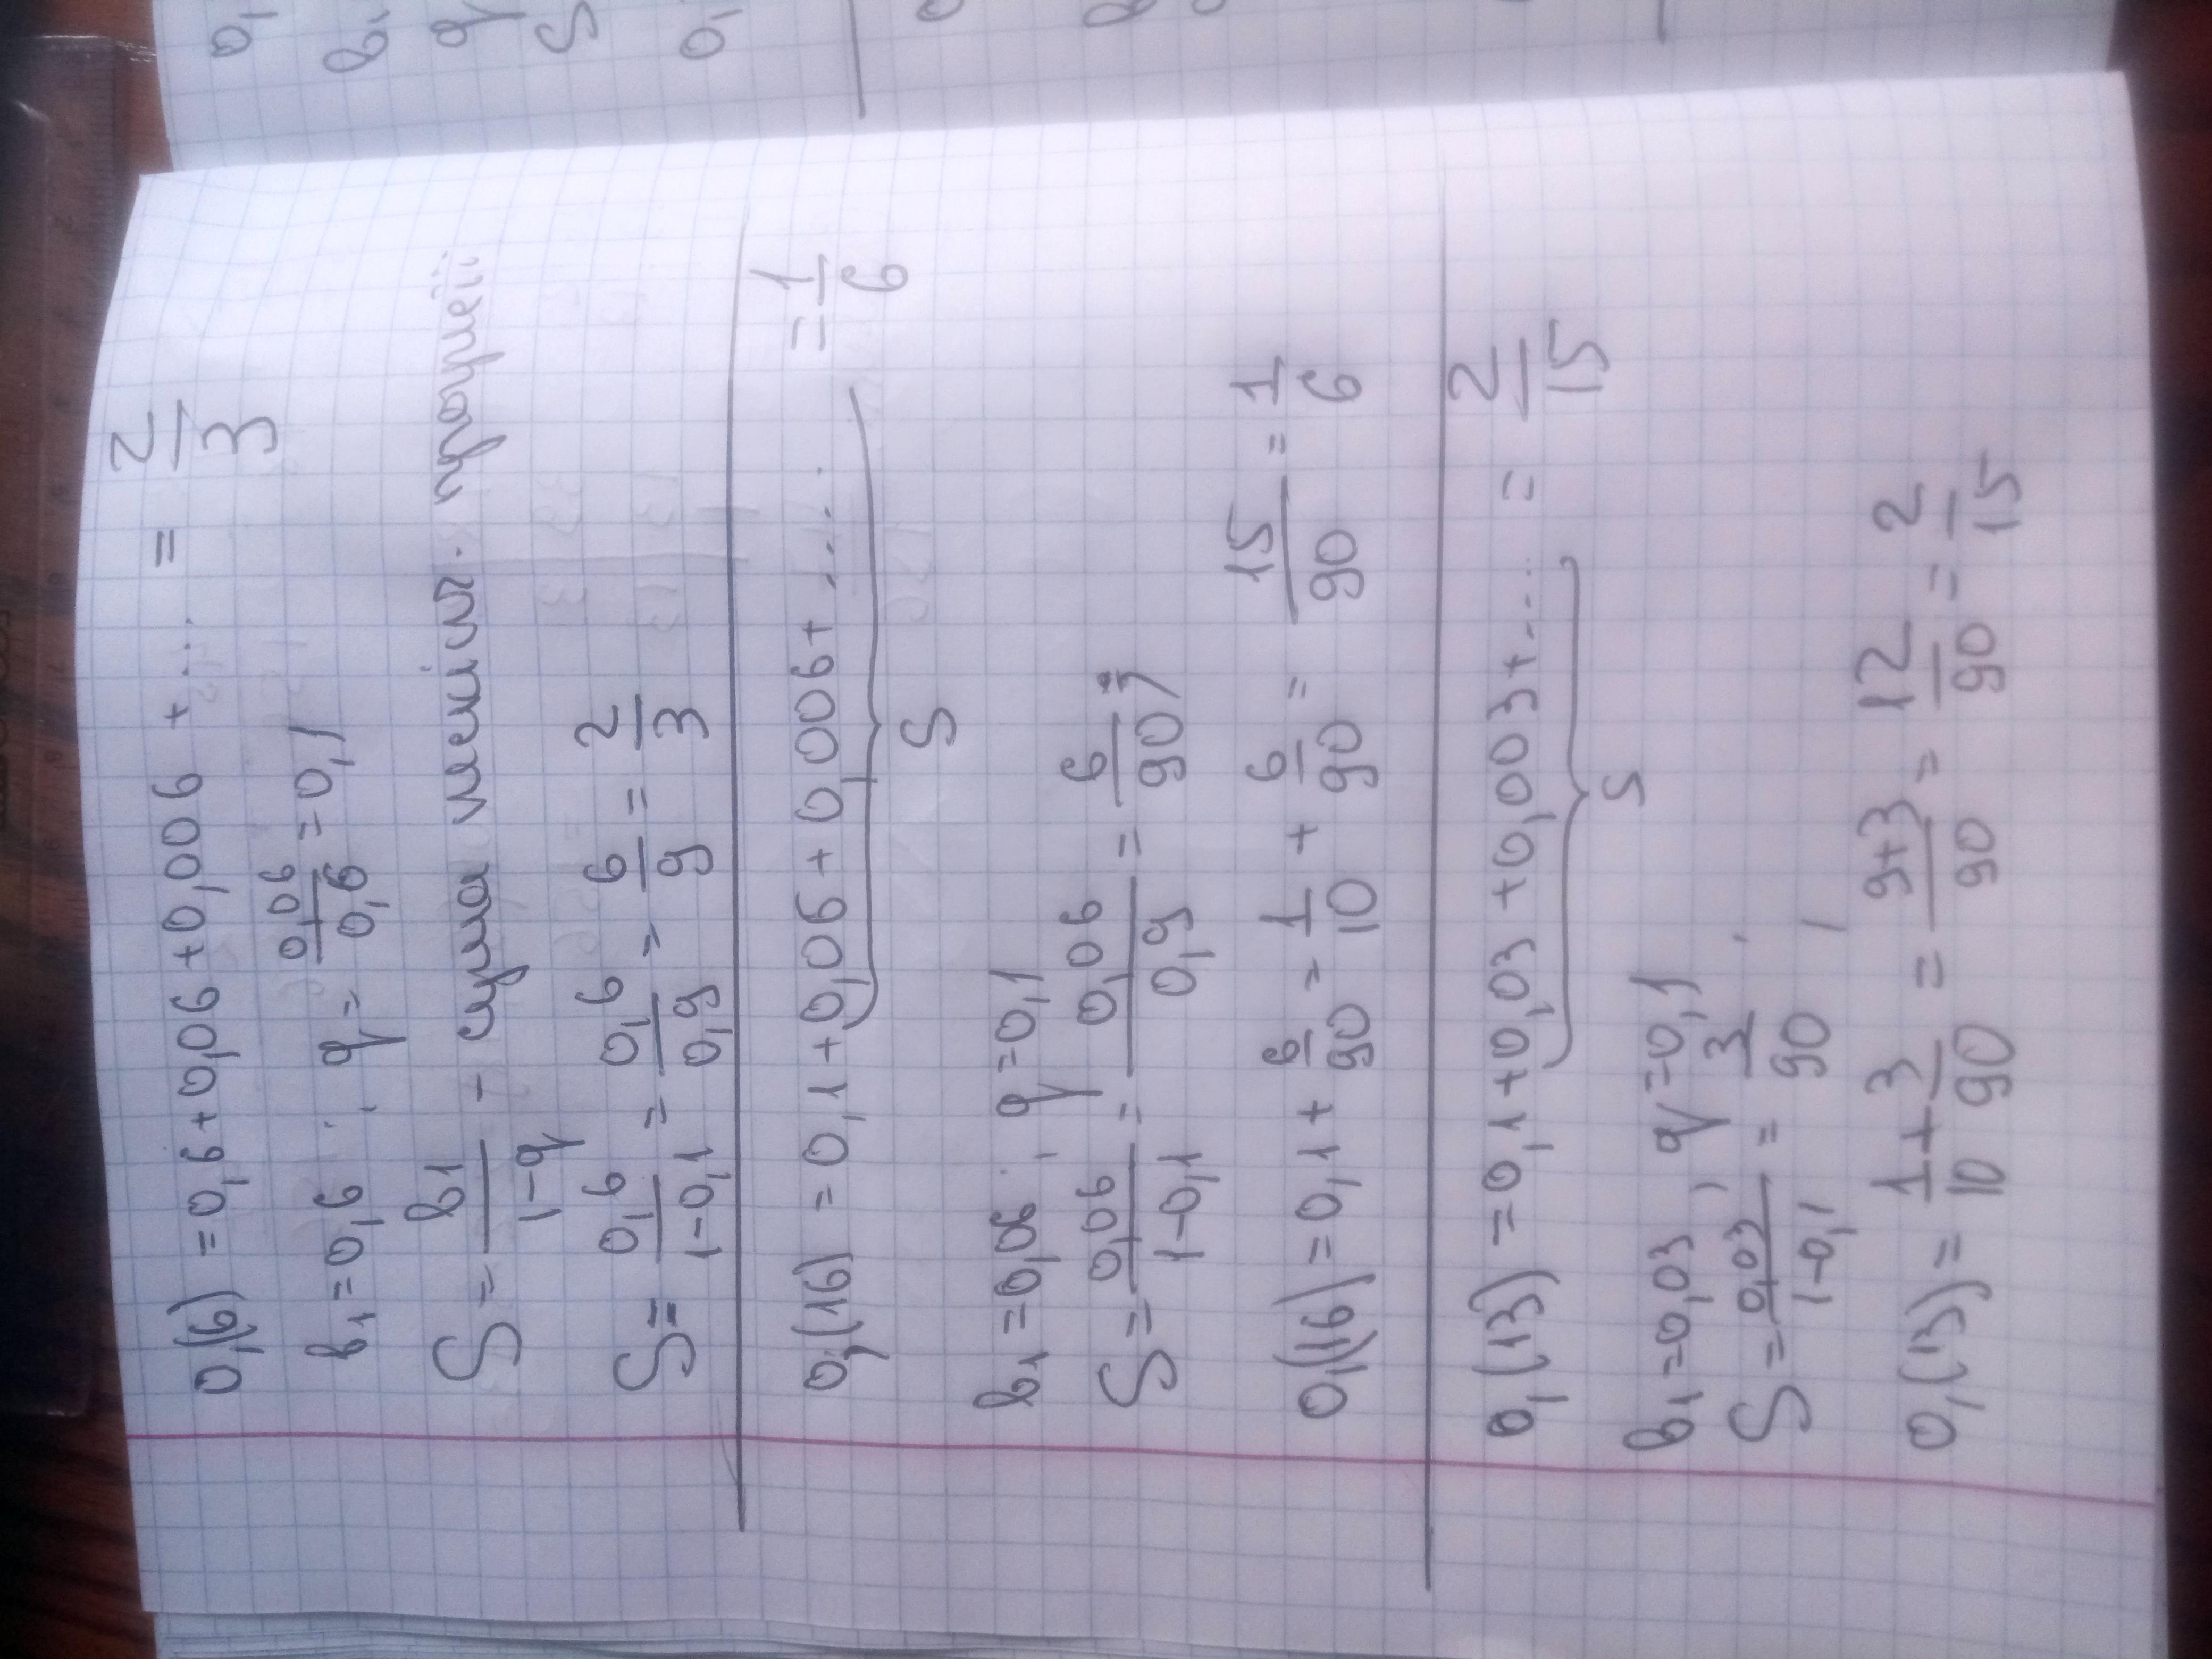 0,(6) = 0,6 + 0,06 + 0,006 + ... = 2/3
b1 = 0,6 ; q = 0,06/0,6 = 0,1
S = b1/1-q - сума нескін. прогресії
S = 0,6/1-0,1 = 0,6/0,9 = 6/9 = 2/3
0,(16) = 0,1 + 0,06 + 0,006 + .... = 1/6
S
b1 = 0,06 ; q = 0,1
S = 0,06/1-0,1 = 0,06/0,9 = 6/90 ;
0,(16) = 0,1 + 6/90 = 1/10 + 6/90 = 15/90 = 1/6
0,(13) = 0,1 + 0,03 + 0,003 + .... = 2/15
S
b1 = 0,03 , q = 0,1
S = 0,03/1-0,1 = 3/90 ;
0,(13) = 1/10 + 3/90 = 9+3/90 = 12/90 = 2/15